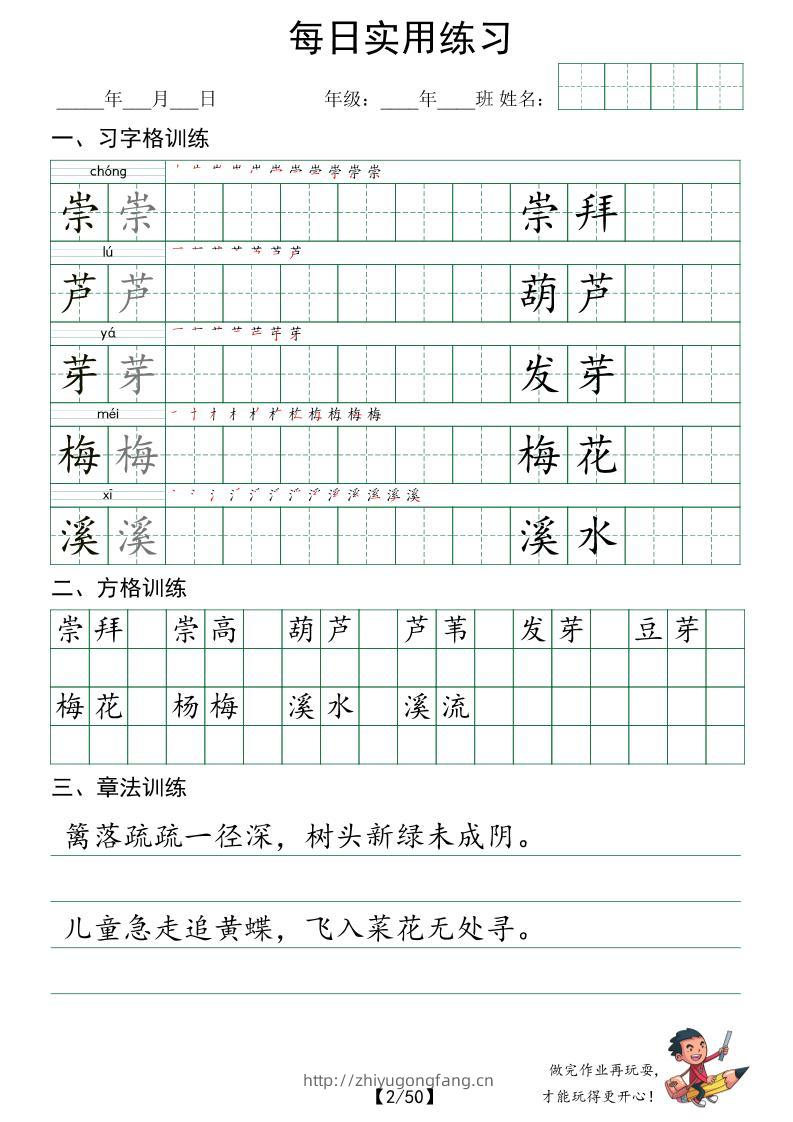 每日实用练习
_____年___月___日 年级：____年____班 姓名：
一、习字格训练
chóng
崇 崇 崇 拜
lú
芦 芦 葫 芦
yá
芽 芽 发 芽
méi
梅 梅 梅 花
xī
溪 溪 溪 水
二、方格训练
崇 拜 崇 高 葫 芦 芦 苇 发 芽 豆 芽
梅 花 杨 梅 溪 水 溪 流
三、章法训练
篱落疏疏一径深，树头新绿未成阴。
儿童急走追黄蝶，飞入菜花无处寻。
做完作业再玩耍，
http://zhiyugongfang.cn
才能玩得更开心！
【2/50】